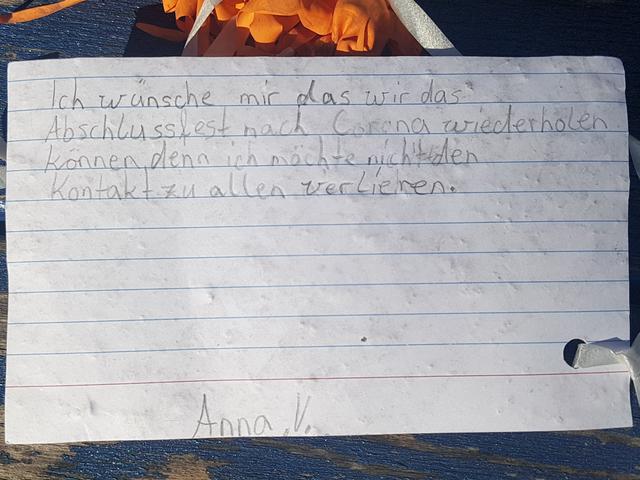 Ich wünsche mir das wir das
Abschlussfest nach Corona wiederholen
können denn ich möchte nicht den
Kontakt zu allen verlieren.
Anna V.